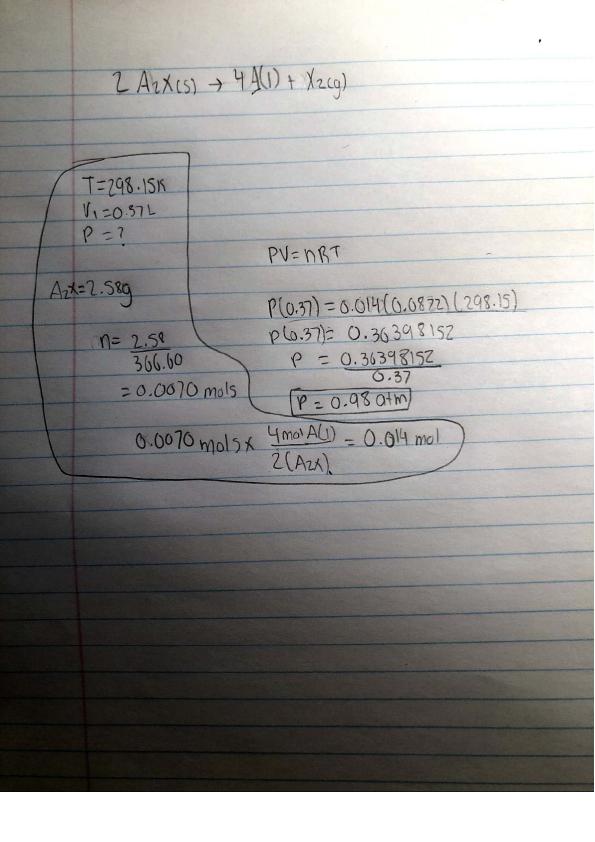 2 A₂X(s) → 4A(l) + X₂(g)
T=298.15K
V₁=0.37L
P = ?
A₂X=2.58g
n= 2.58
366.60
= 0.0070 mols
PV=nRT
P(0.37) = 0.014(0.0872)(298.15)
P(0.37)= 0.36398152
P = 0.36398152
0.37
P = 0.98 atm
0.0070 mols x 4mol A(l) = 0.014 mol
2(A₂X)